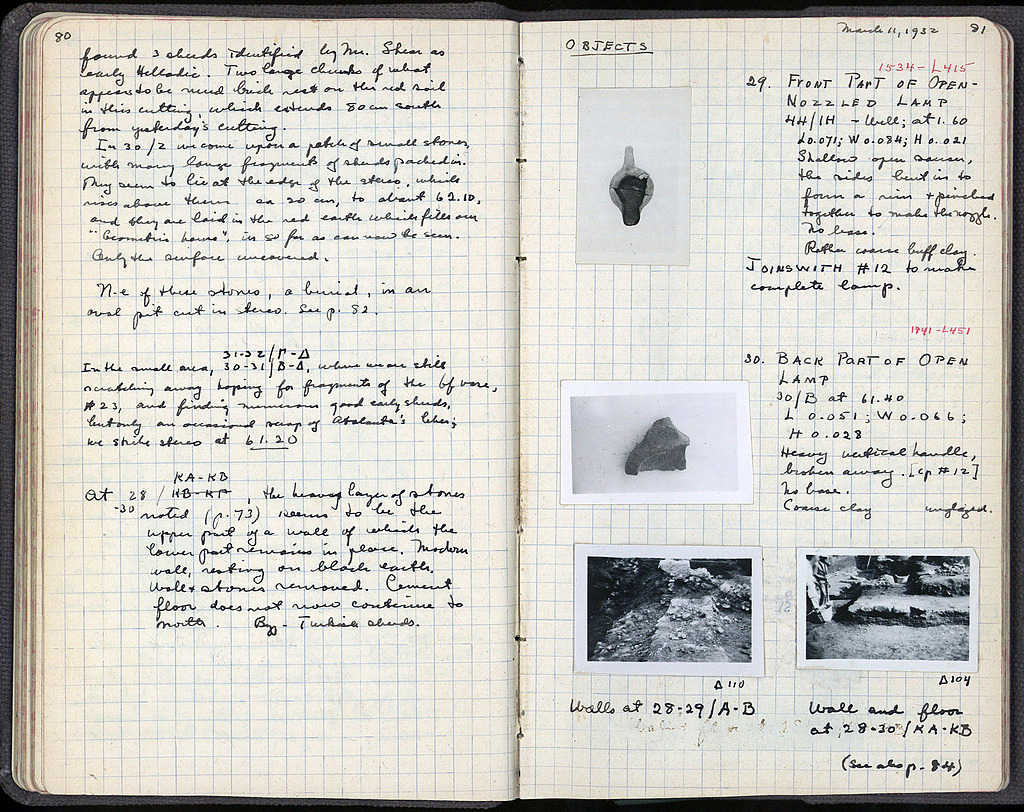 80
found 3 sherds identified by Mr. Shear as
early Helladic. Two large chunks of what
appears to be mud brick rest on the red soil
in this cutting, which extends 80 cm south
from yesterday's cutting.
In 30/2 we come upon a patch of small stones,
with many large fragments of sherds packed in.
They seem to lie at the edge of the stereo, which
rises above them ca 20 cm, to about 62.10,
and they are laid in the red earth which fills our
"Geometric house", in so far as can now be seen.
Only the surface uncovered.
N.e of these stones, a burial, in an
oval pit cut in stereo. See p. 82.
31-32/Γ-Δ
In the small area, 30-31/B-Δ, where we are still
scratching away hoping for fragments of the bf vase,
#23, and finding numerous good early sherds,
but only an occasional scrap of Atalanta's
we strike stereo at 61.20
KA-KB
At 28/KB-KΓ, the heavy layer of stones
-30 noted (p.73) seems to be the
upper part of a wall of which the
lower part remains in place. Modern
wall, resting on black earth.
Wall & stones removed. Cement
floor does not now continue to
north. By - Turkish sherds.
March 11, 1932 81
OBJECTS
1534-L415
29. FRONT PART OF OPEN-
NOZZLED LAMP
44/ΙΗ - Well; at 1.60
L 0.071; W 0.084; H 0.021
Shallow open saucer,
the sides bent in to
form a rim & pinched
together to make the nozzle.
No base.
Rather coarse buff clay.
JOINS WITH #12 to make
complete lamp.
1741-L451
30. BACK PART OF OPEN
LAMP
30/B at 61.40
L 0.051; W 0.066;
H 0.028
Heavy vertical handle,
broken away. [cp #12]
No base.
Coarse clay unglazed.
Δ 110
Walls at 28-29/A-B
Δ 104
Wall and floor
at 28-30/KA-KB
(see also p. 84)